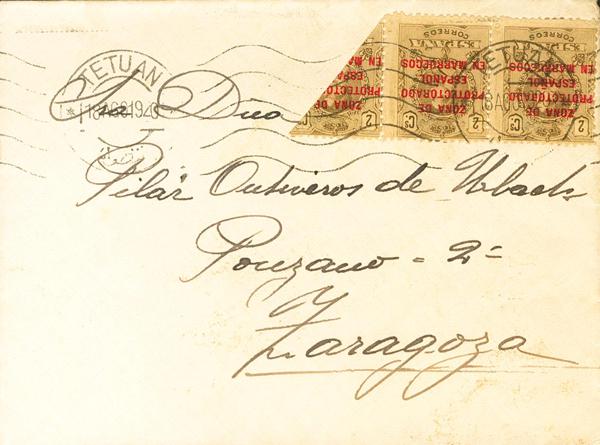 CORREOS
ZONA DE PROTECTORADO ESPAÑOL EN MARRUECOS
2 Cs
ZONA DE PROTECTORADO ESPAÑOL EN MARRUECOS
2 Cs
ZONA DE PROTECTORADO ESPAÑOL EN MARRUECOS
2
TETUAN
Sª Dña
Pilar Ontiveros de Urbach
Ponzano - 2º -
Zaragoza